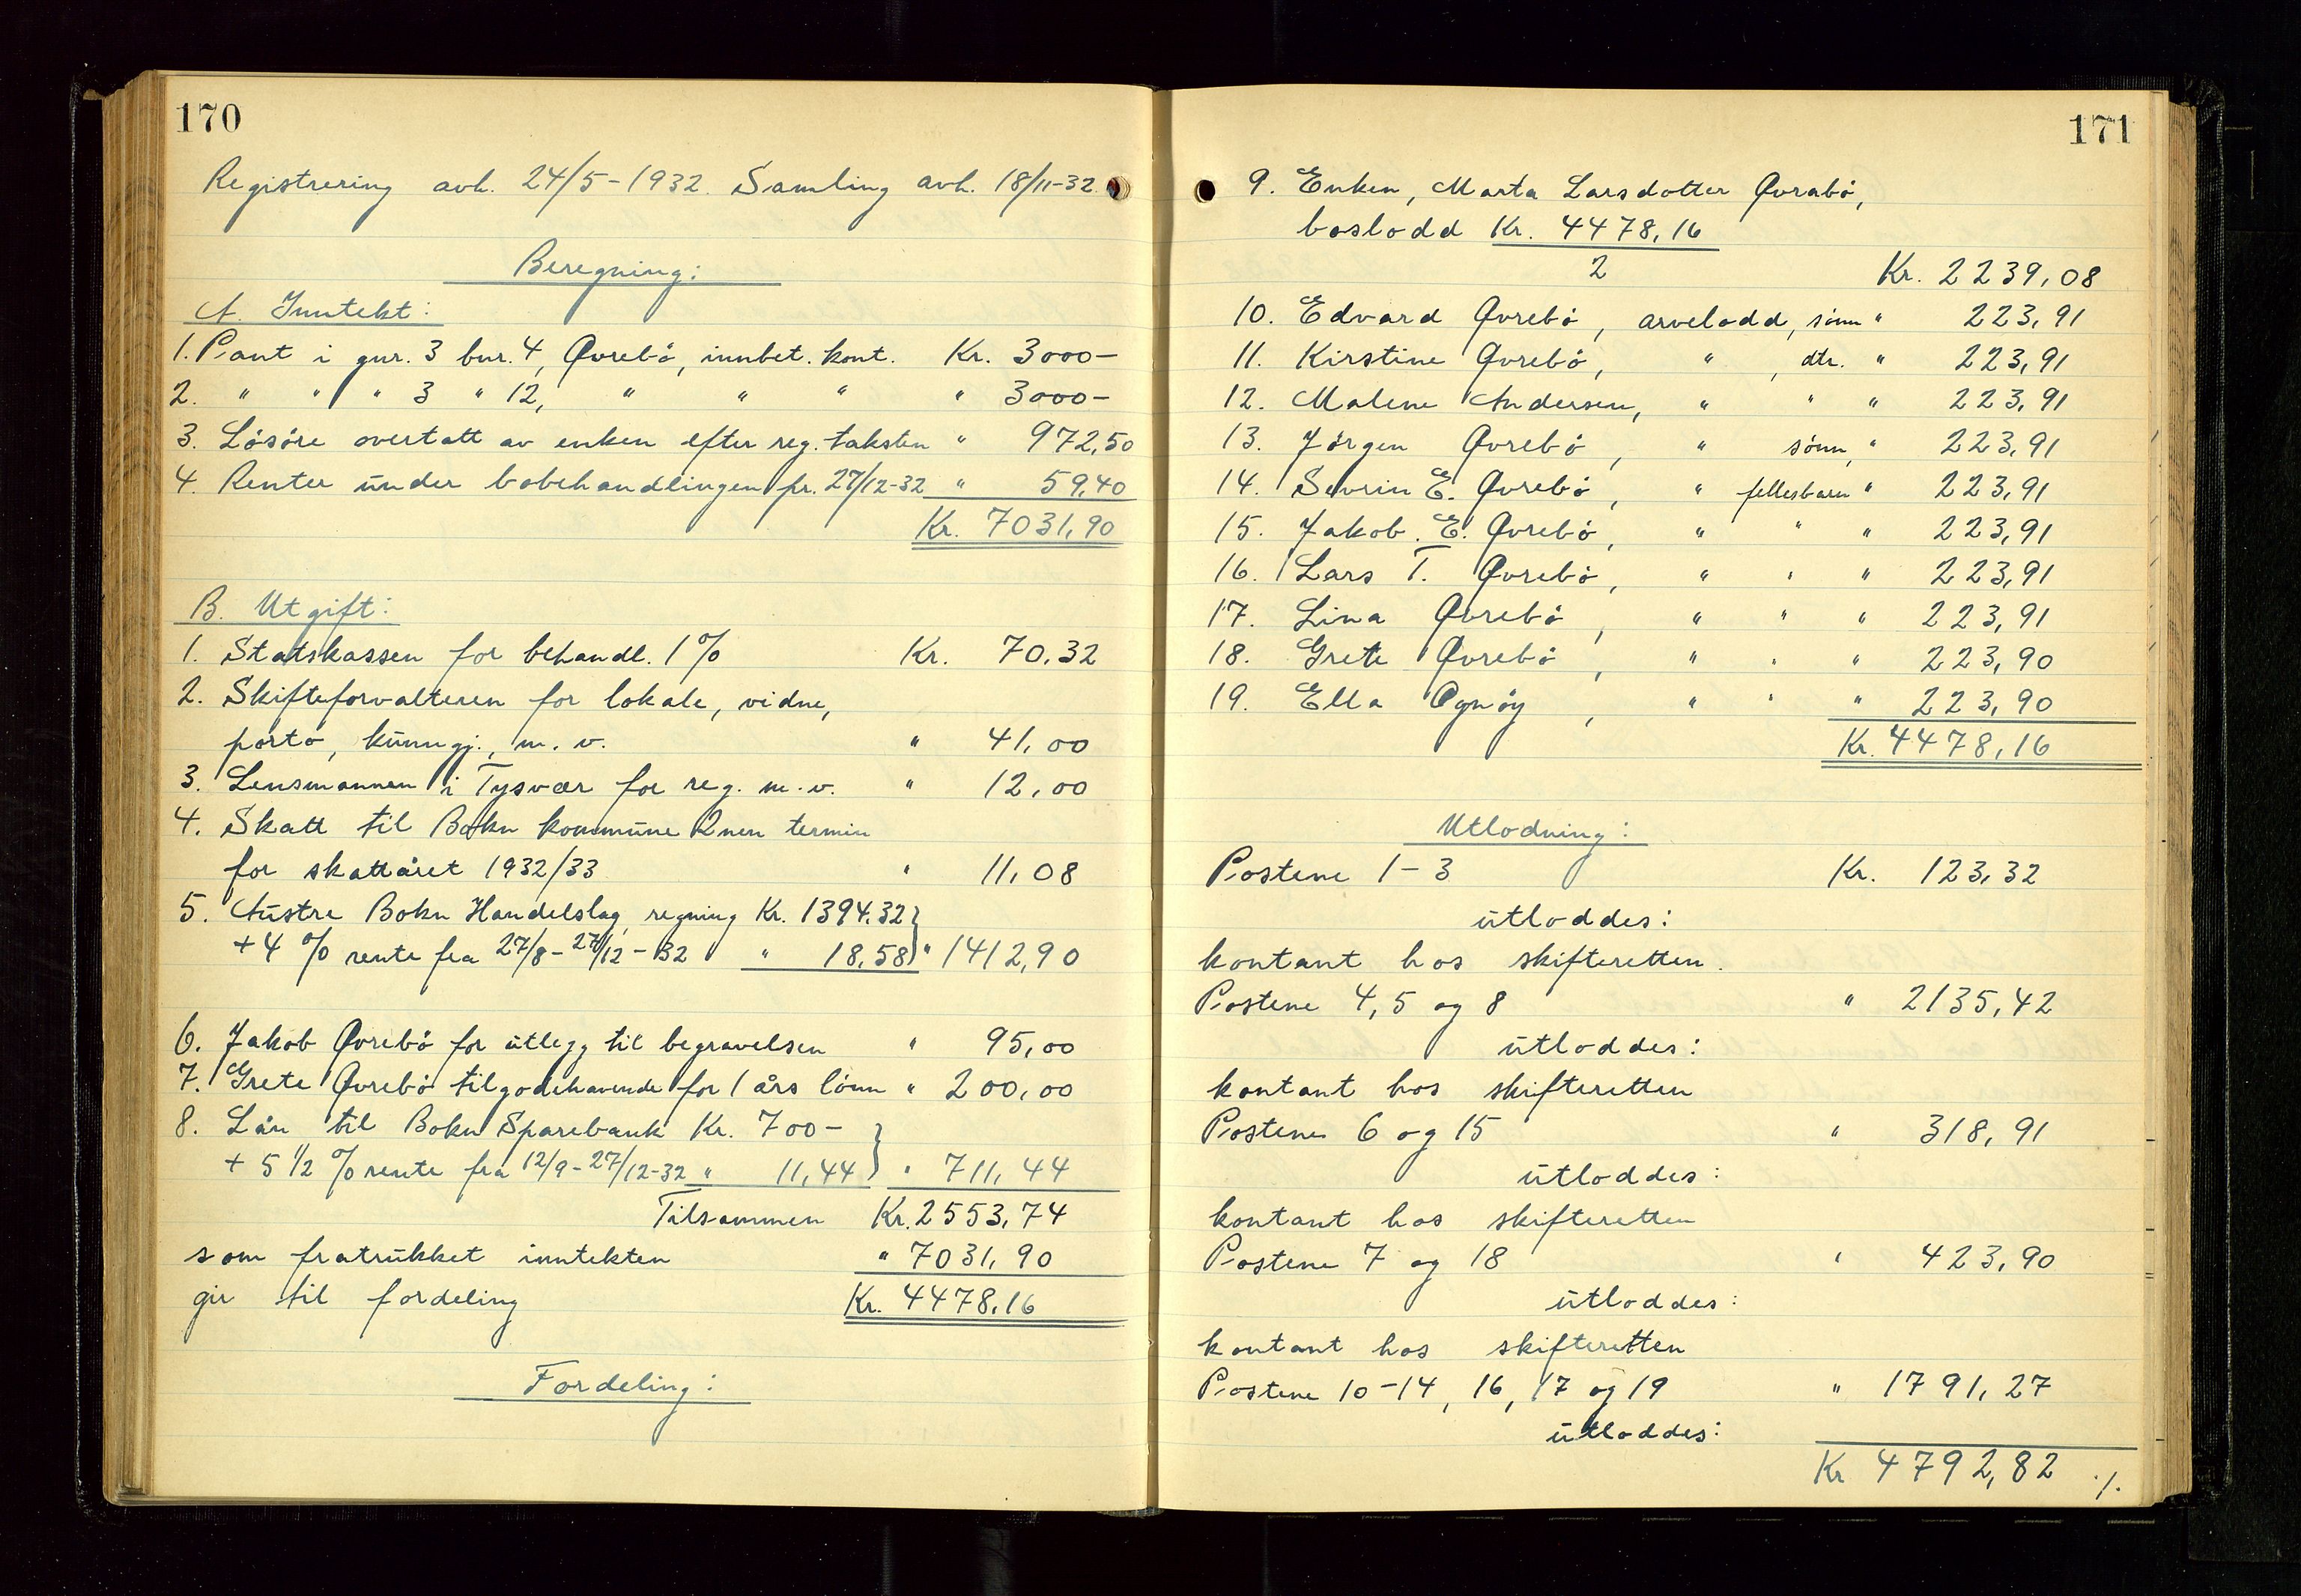 170
Registrering avh. 24/5-1932. Samling avh. 18/11-32.
Beregning:
A. Inntekt:
1. Pant i gnr. 3 bnr. 4, Øvrebö, innbet. kont. Kr. 3000-
2. " " " 3 " 12, " " " " 3000-
3. Lösöre overtatt av enken efter reg. taksten " 972,50
4. Renter under bobehandlingen pr. 27/12-32 " 59,40
Kr. 7031,90
B. Utgift:
1. Statskassen for behandl. 1% Kr. 70,32
2. Skifteforvalteren for lokale, vidne,
porto, kunngj., m. v. " 41,00
3. Lensmannen i Tysvær for reg. m.v. " 12,00
4. Skatt til Bokn kommune 2nen termin
for skattåret 1932/33 " 11,08
5. Austre Bokn Handelslag, regning Kr. 1394.32
+ 4 % rente fra 27/8-27/12-32 " 18,58 " 1412,90
6. Jakob Øvrebö for utlegg til begravelsen " 95,00
7. Grete Øvrebö tilgodehavende for 1 års lönn " 200,00
8. Lån til Bokn Sparebank Kr. 700-
+ 5 1/2 % rente fra 12/9-27/12-32 " 11,44 " 711,44
Tilsammen Kr. 2553,74
som fratrukket inntekten " 7031,90
gir til fordeling Kr. 4478,16
Fordeling:
171
9. Enken, Marta Larsdotter Øvrabö,
boslodd Kr. 4478,16
2 Kr. 2239,08
10. Edvard Øvrebö, arvelodd, sönn " 223,91
11. Kirstine Øvrebö, " , dtr. " 223,91
12. Malene Andersen, " " " 223,91
13. Jörgen Øvrebö, " sönn, " 223,91
14. Sevrin E. Øvrebö, " fellesbarn " 223,91
15. Jakob. E. Øvrebö, " " " 223,91
16. Lars T. Øvrebö, " " " 223,91
17. Lina Øvrebö, " " " 223,91
18. Grete Øvrebö, " " " 223,90
19. Ella Ognöy, " " " 223,90
Kr. 4478,16
Utlodning:
Postene 1-3 Kr. 123,32
utloddes:
kontant hos skifteretten.
Postene 4, 5 og 8 " 2135,42
utloddes:
kontant hos skifteretten
Postene 6 og 15 " 318,91
utloddes:
kontant hos skifteretten
Postene 7 og 18 " 423,90
utloddes:
kontant hos skifteretten
Postene 10-14, 16, 17 og 19 " 1791,27
utloddes:
Kr 4792,82 ./.